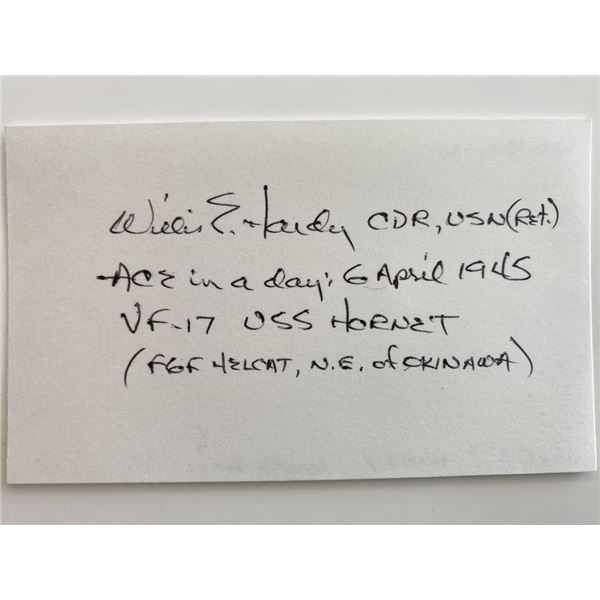 Willis E. Hardy CDR, USN (Ret.)
ACE in a day: 6 April 1945
VF-17 USS HORNET
(F6F HELCAT, N.E. of OKINAWA)